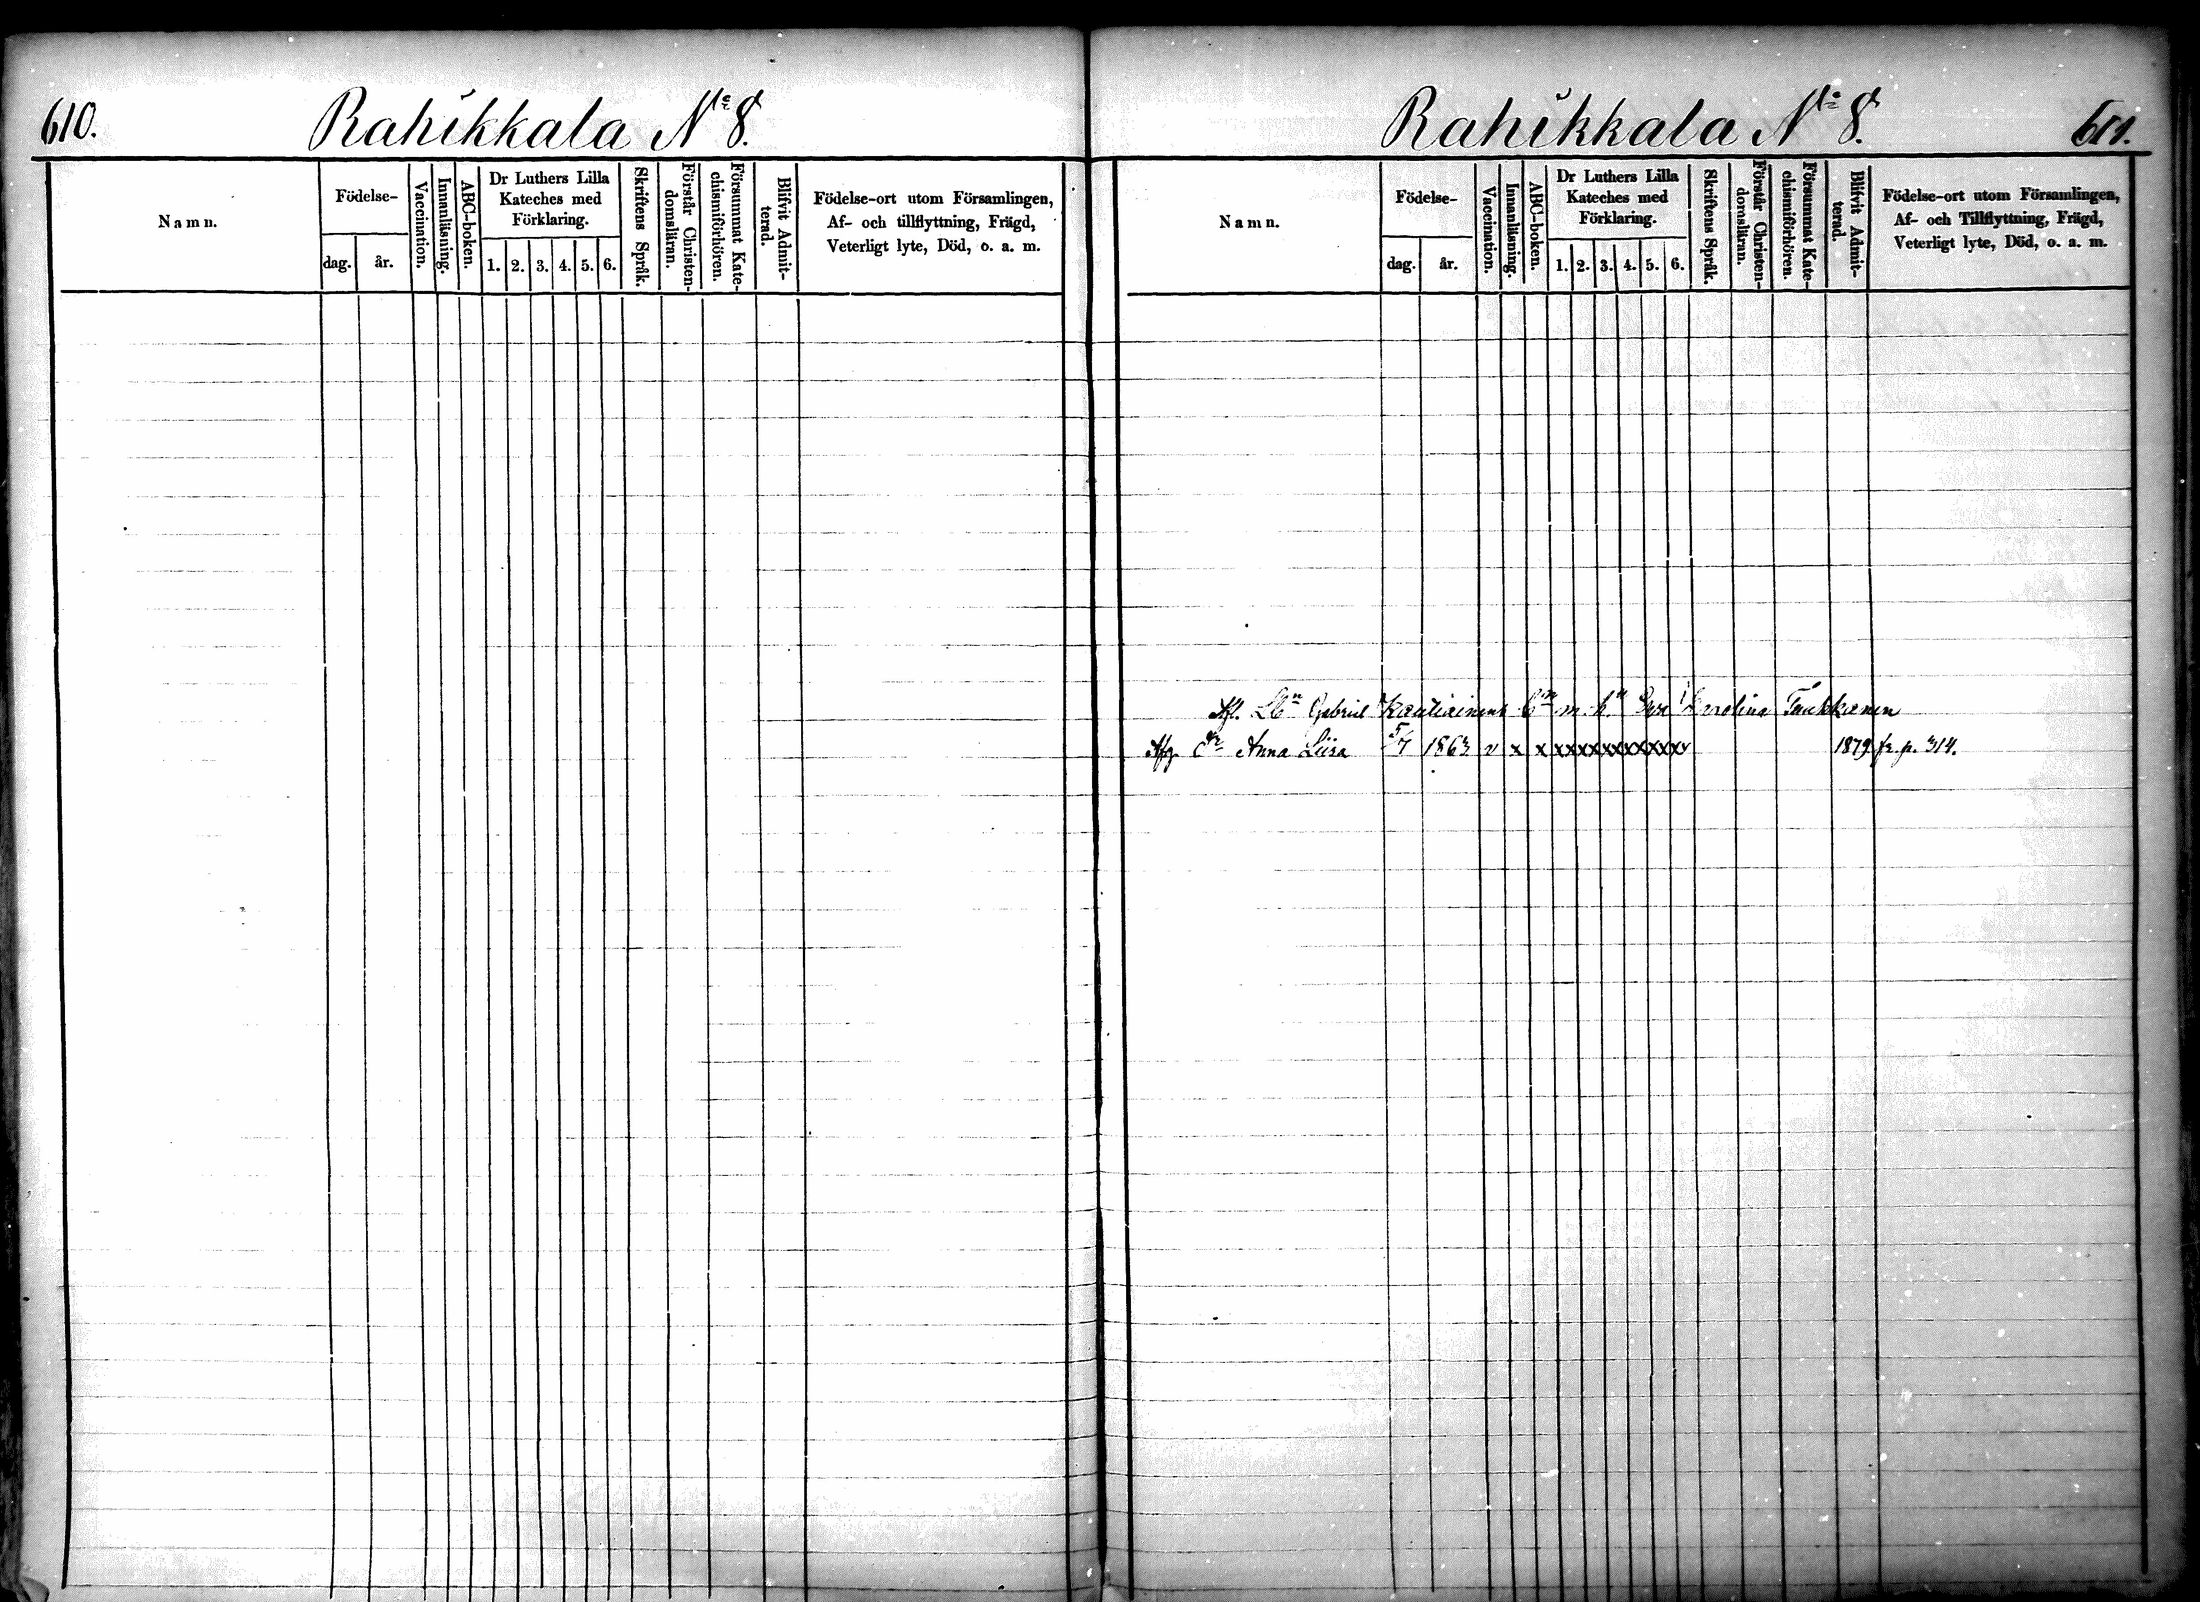 610.
Rahikkala No 8.
Namn.
Födelse-
dag.
år.
Vaccination.
Innanläsning.
ABC-boken.
Dr Luthers Lilla
Kateches med
Förklaring.
1. 2. 3. 4. 5. 6.
Skriftens Språk.
Förstår Christen-
domsläran.
Försummat Kate-
chismiförhören.
Blifvit Admit-
terad.
Födelse-ort utom Församlingen,
Af- och tillflyttning, Frägd,
Veterligt lyte, Död, o. a. m.
Rahikkala No 8.
611.
Namn.
Födelse-
dag.
år.
Vaccination.
Innanläsning.
ABC-boken.
Dr Luthers Lilla
Kateches med
Förklaring.
1. 2. 3. 4. 5. 6.
Skriftens Språk.
Förstår Christen-
domsläran.
Försummat Kate-
chismiförhören.
Blifvit Admit-
terad.
Födelse-ort utom Församlingen,
Af- och Tillflyttning, Frägd,
Veterligt lyte, Död, o. a. m.
Afl. Gabriel m. h.
Anna Liisa 5/7 1863 v x x xxxxxxxxxxx 1879 fr. p. 314.